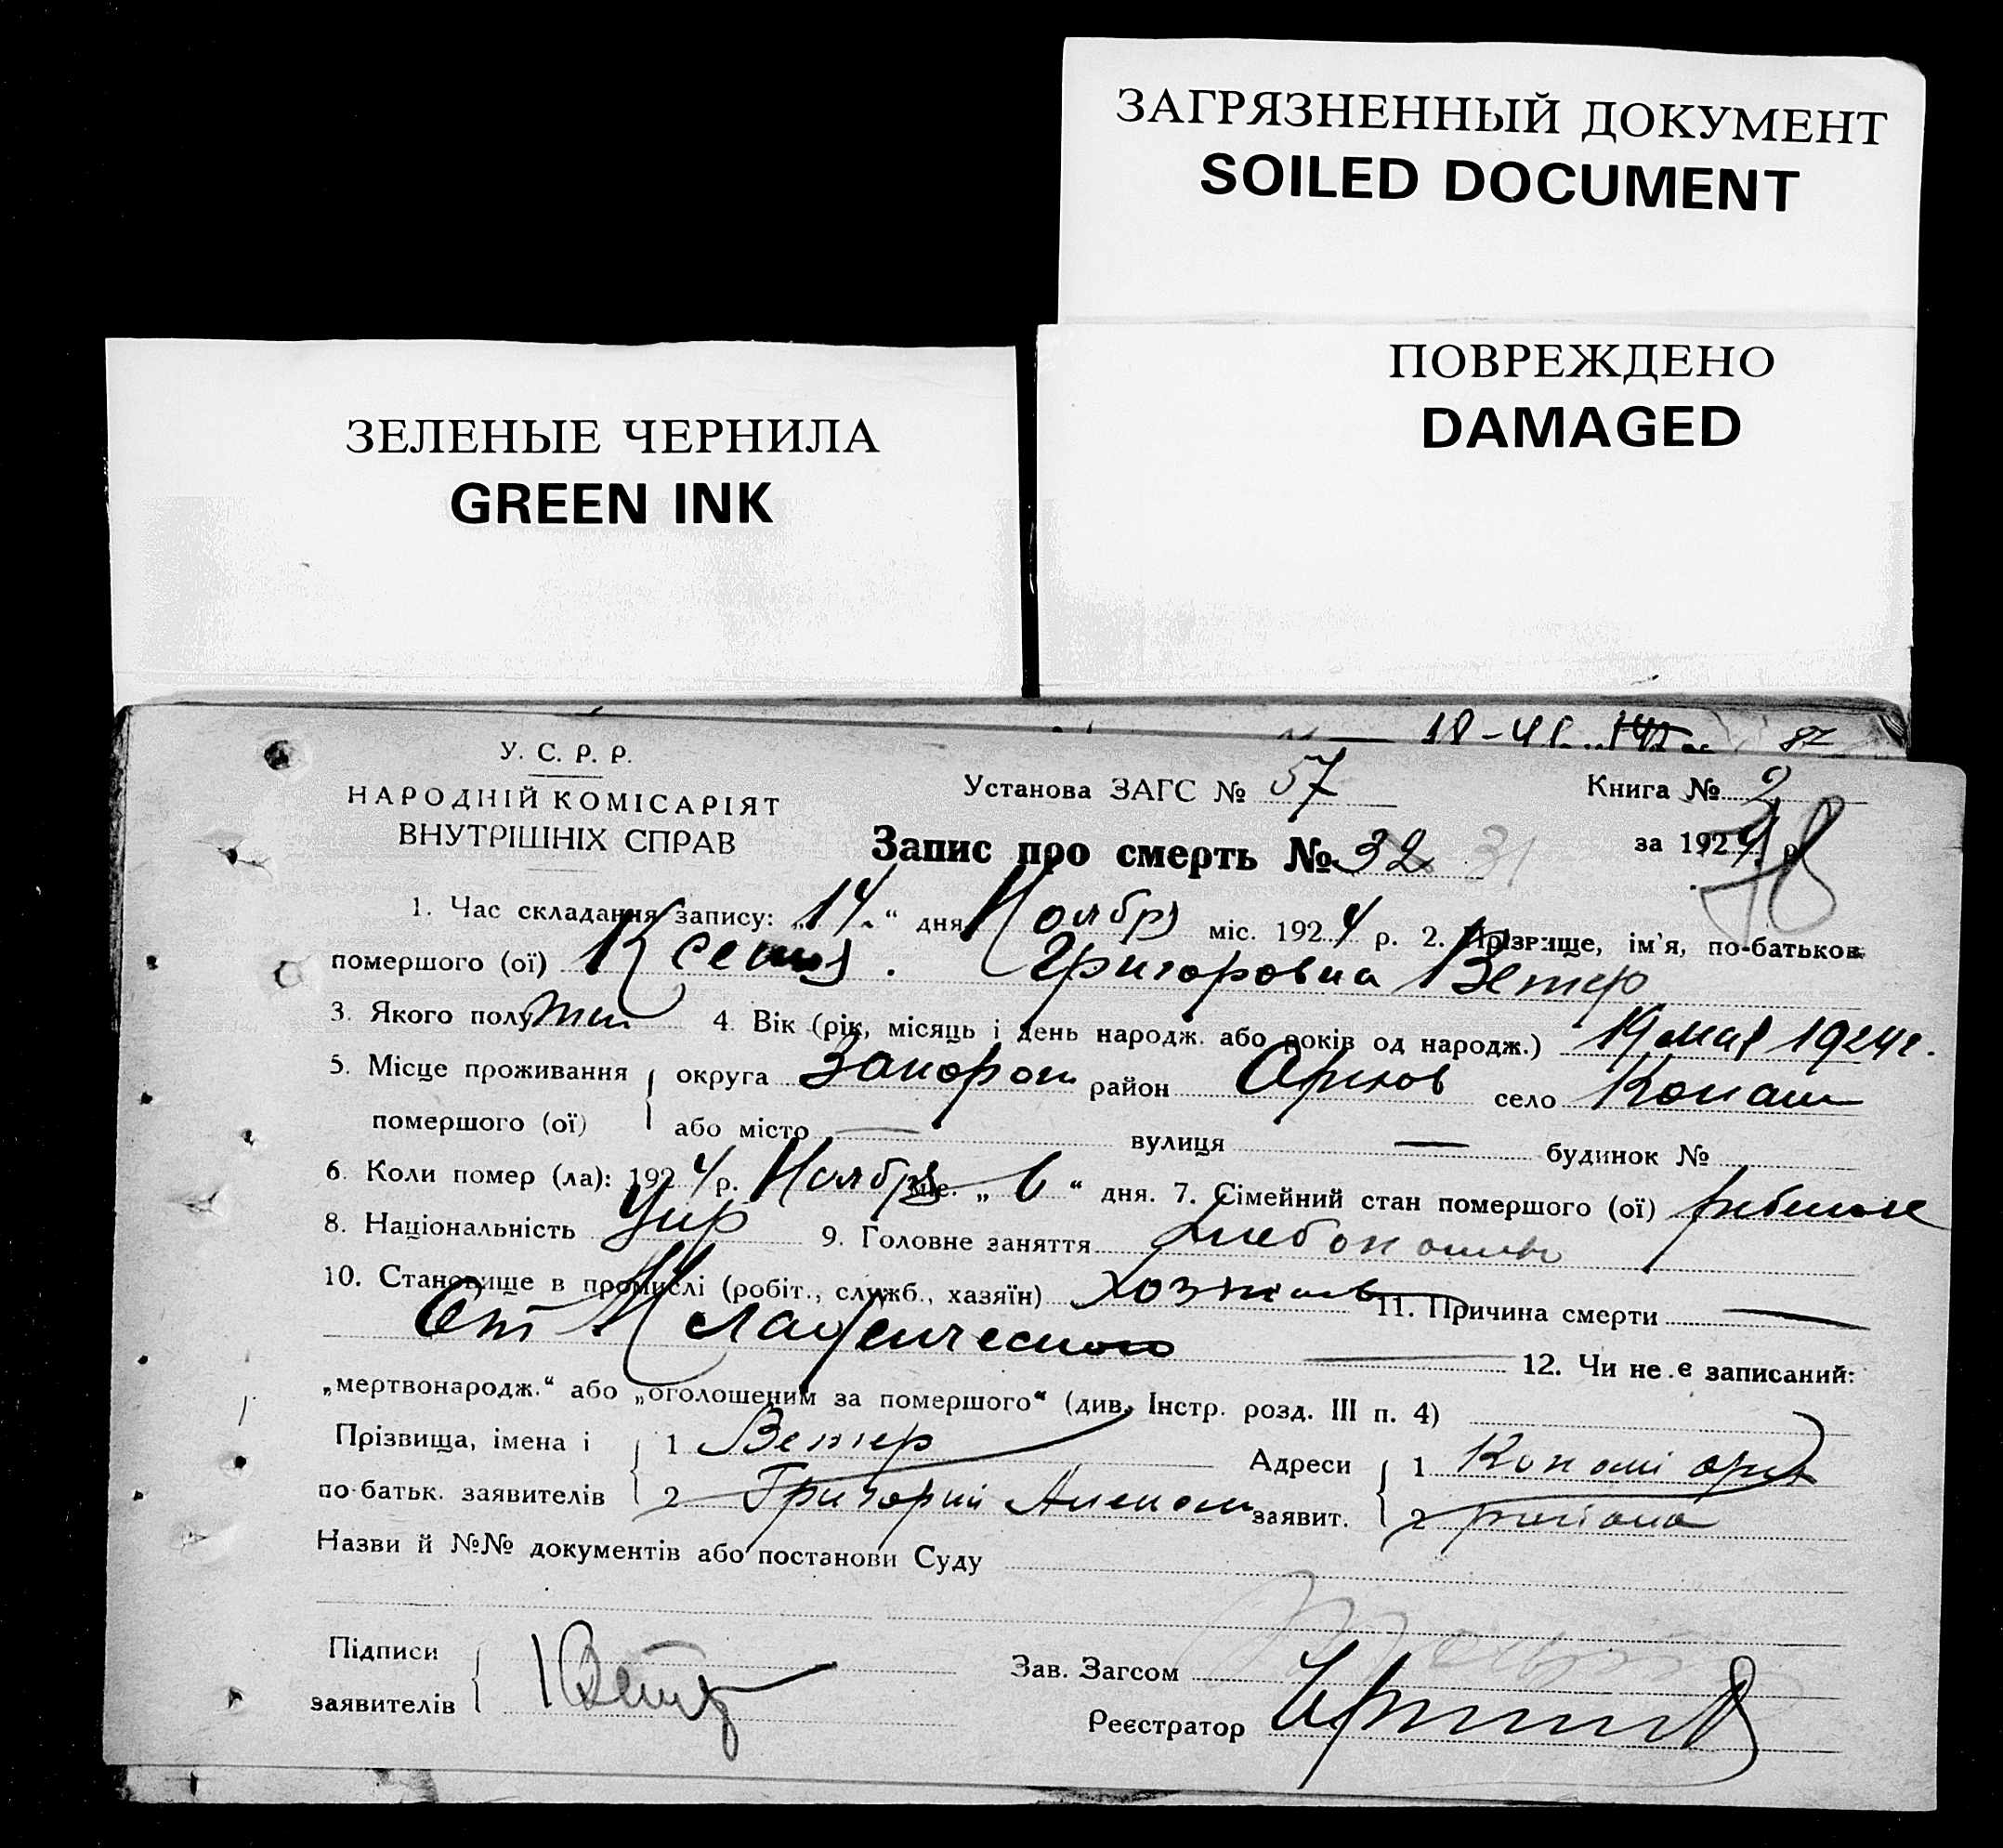 ЗАГРЯЗНЕННЫЙ ДОКУМЕНТ
SOILED DOCUMENT
ПОВРЕЖДЕНО
DAMAGED
ЗЕЛЕНЫЕ ЧЕРНИЛА
GREEN INK
У. С. Р. Р.
НАРОДНІЙ КОМІСАРІЯТ
ВНУТРІШНІХ СПРАВ
Установа ЗАГС № 57
Книга № 2
за 1924 р.
Запис про смерть № 32 31
78
1. Час складання запису: „14“ дня Ноября міс. 1924 р. 2. Прізвище, ім'я, по-батьков.
помершого (ої) Ксения Григоровна Ветер
3. Якого полу жен 4. Вік (рік, місяць і день народж. або років од народж.) 19 мая 1924 г.
5. Місце проживання округа Запорож район Орехов село Копани
помершого (ої) або місто — вулиця — будинок №
6. Коли помер (ла): 1924 р. Ноября міс. „6“ дня. 7. Сімейний стан помершого (ої)
8. Національність Укр 9. Головне заняття хлебопашев
10. Становище в промислі (робіт., служб., хазяїн) 11. Причина смерти —
От Младенческого — 12. Чи не є записаний:
„мертвонародж.“ або „оголошеним за помершого“ (див. Інстр. розд. III п. 4)
Прізвища, імена і 1 Ветер Адреси 1 Копани
по-батьк. заявителів 2 Григорий заявит. 2 района
Назви й №№ документів або постанови Суду
Підписи
заявителів Ветер
Зав. Загсом
Реєстратор